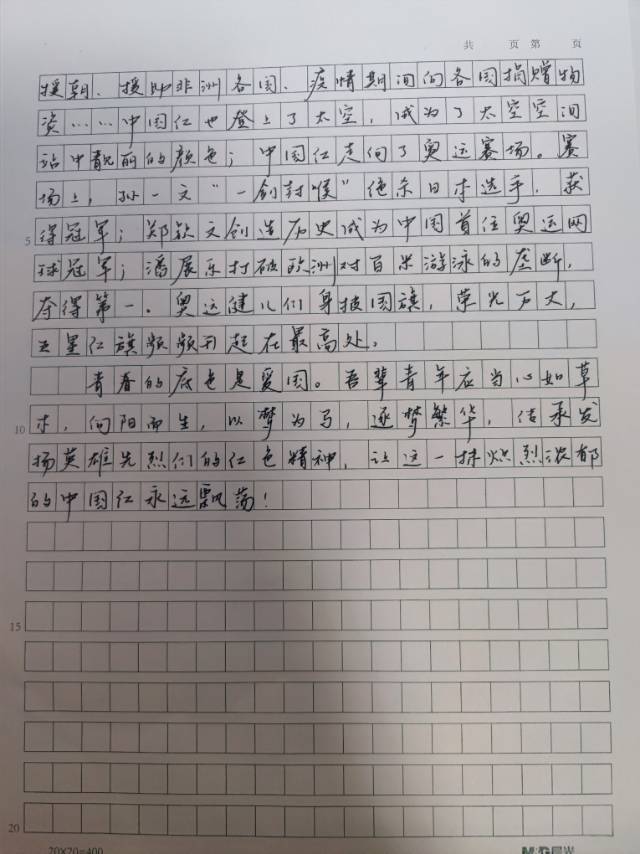 共 页 第 页
援朝、援助非洲各国、疫情期间向各国捐赠物
资……中国红也登上了太空,成为了太空空间
站中靓丽的颜色;中国红走向了奥运赛场。赛
场上,孙一文“一剑封喉”绝杀日本选手,获
5 得冠军;郑钦文创造历史成为中国首位奥运网
球冠军;潘展乐打破欧洲对百米游泳的垄断,
夺得第一。奥运健儿们身披国旗,荣光万丈,
五星红旗频频升起在最高处。
青春的底色是爱国。吾辈青年应当心如草
10 木,向阳而生,以梦为马,逐梦繁华,传承发
扬英雄先烈们的红色精神,让这一抹炽烈浓郁
的中国红永远飘荡!
15
20
20×20=400 M&G晨光